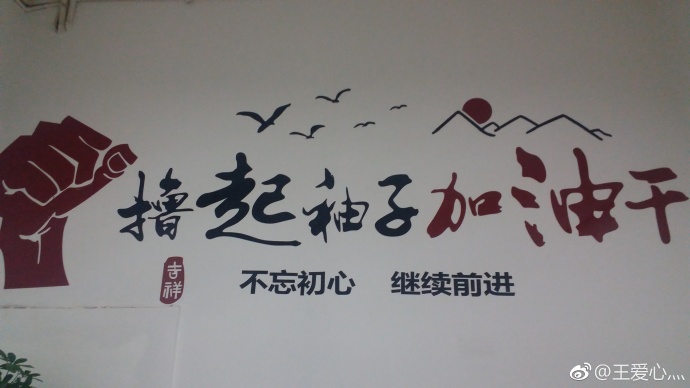 撸起袖子加油干
吉祥
不忘初心 继续前进
@王爱心灬